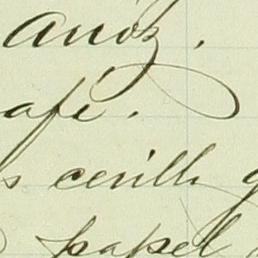 arroz.
café.
s cerill
papel